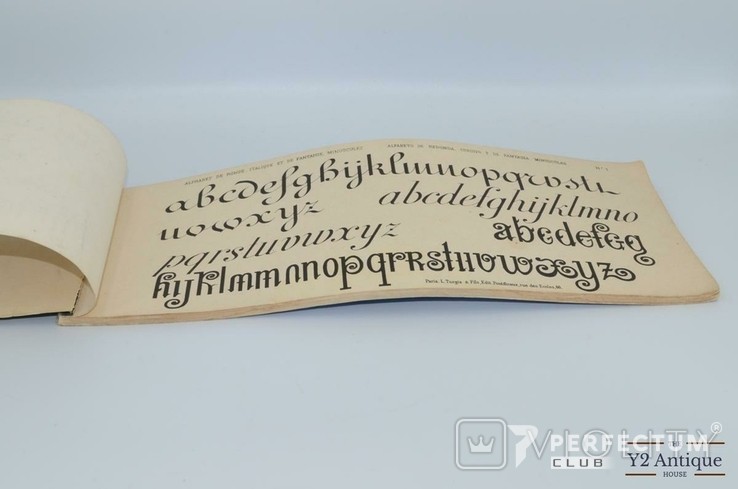 ALPHABET DE RONDE, ITALIQUE ET DE FANTAISIE, MINUSCULES
ALFABETO DE REDONDA, CURSIVA Y DE FANTASIA, MINUSCULAS
Nº 1
abcdefghijklmnopqrs
uvwxyz
abcdefghijklmno
pqrstuvwxyz
abcdefg
hijklmnopqrstuvwxyz
Paris. L. Turgis & Fils, Edit.
VIOLITY
PERFECTUM
CLUB
THE
Y2 Antique
HOUSE